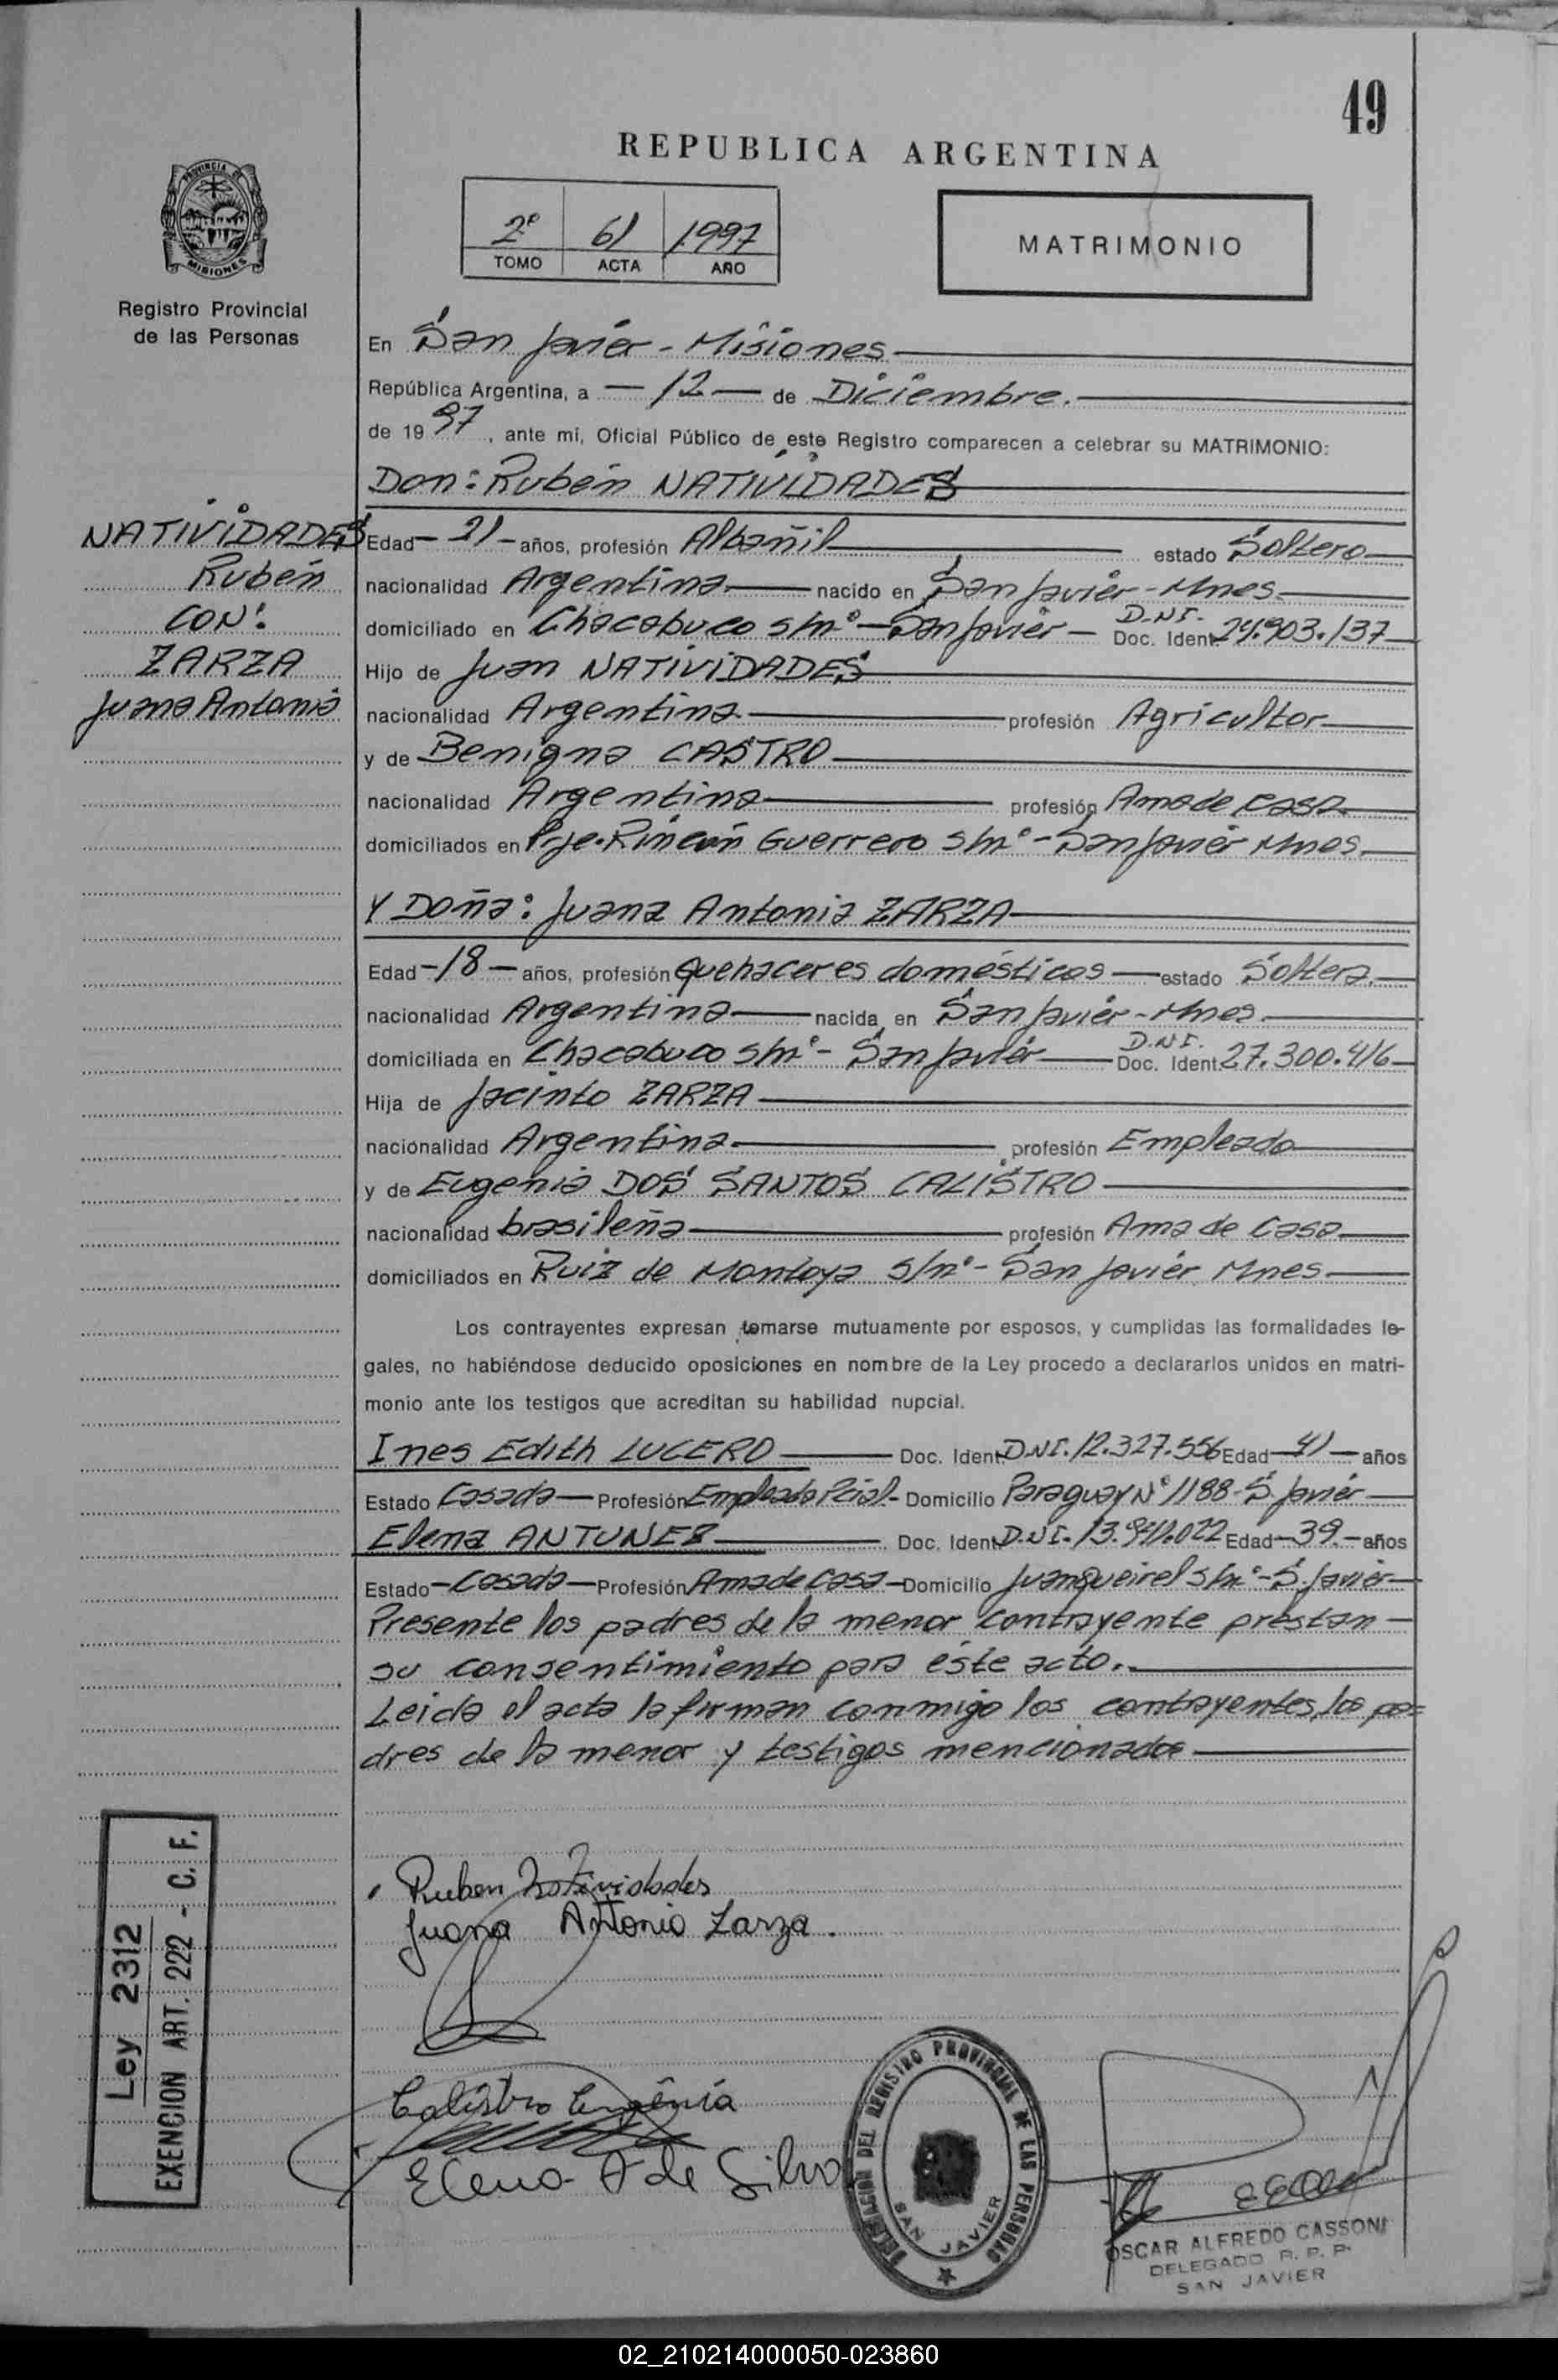 49
REPUBLICA ARGENTINA
2º 61 1997
TOMO ACTA AÑO
MATRIMONIO
PROVINCIA DE
MISIONES
Registro Provincial
de las Personas
En San Javier - Misiones
República Argentina, a — 12 — de Diciembre.
de 19 97, ante mi, Oficial Público de este Registro comparecen a celebrar su MATRIMONIO:
Don: Rubén NATIVIDADES
NATIVIDADES
Rubén
CON:
ZARZA
Juana Antonia
Edad - 21 - años, profesión Albañil estado Soltero
nacionalidad Argentina nacido en San Javier - Mnes.
domiciliado en Chacabuco s/nº - San Javier - D.N.I. Doc. Ident. 24.903.137
Hijo de Juan NATIVIDADES
nacionalidad Argentina profesión Agricultor
y de Benigna CASTRO
nacionalidad Argentina profesión Ama de casa
domiciliados en Pje. Rincón Guerrero s/nº - San Javier Mnes.
Y Doña: Juana Antonia ZARZA
Edad - 18 - años, profesión Quehaceres domésticos estado Soltera.
nacionalidad Argentina nacida en San Javier - Mnes.
domiciliada en Chacabuco s/nº - San Javier D.N.I. Doc. Ident. 27.300.416
Hija de Jacinto ZARZA
nacionalidad Argentina profesión Empleado
y de Eugenia DOS SANTOS CALISTRO
nacionalidad brasileña profesión Ama de Casa
domiciliados en Ruiz de Montoya s/nº - San Javier Mnes
Los contrayentes expresan tomarse mutuamente por esposos, y cumplidas las formalidades le-
gales, no habiéndose deducido oposiciones en nombre de la Ley procedo a declararlos unidos en matri-
monio ante los testigos que acreditan su habilidad nupcial.
Ines Edith LUCERO Doc. Ident D.N.I. 12.327.556 Edad - 41 - años
Estado Casada - Profesión Empleada Pcial. - Domicilio Paraguay Nº 1188 - S. Javier
Elena ANTUNEZ Doc. Ident D.N.I. Edad - 39 - años
Estado - Casada - Profesión Ama de Casa - Domicilio Juanqueirel s/nº - S. Javier
Presente los padres de la menor contrayente prestan
su consentimiento para éste acto.
Leida el acta la firman conmigo los contrayentes, los pa=
dres de la menor y testigos mencionados
Ruben Natividades
Juana Antonia Zarza.
Calistro Eugênia
Elena A de Silva
Ley 2312
EXENCION ART. 222 - C. F.
DELEGACION DEL REGISTRO PROVINCIAL DE LAS PERSONAS
SAN JAVIER
OSCAR ALFREDO CASSONI
DELEGADO R. P. P.
SAN JAVIER
02_210214000050-023860